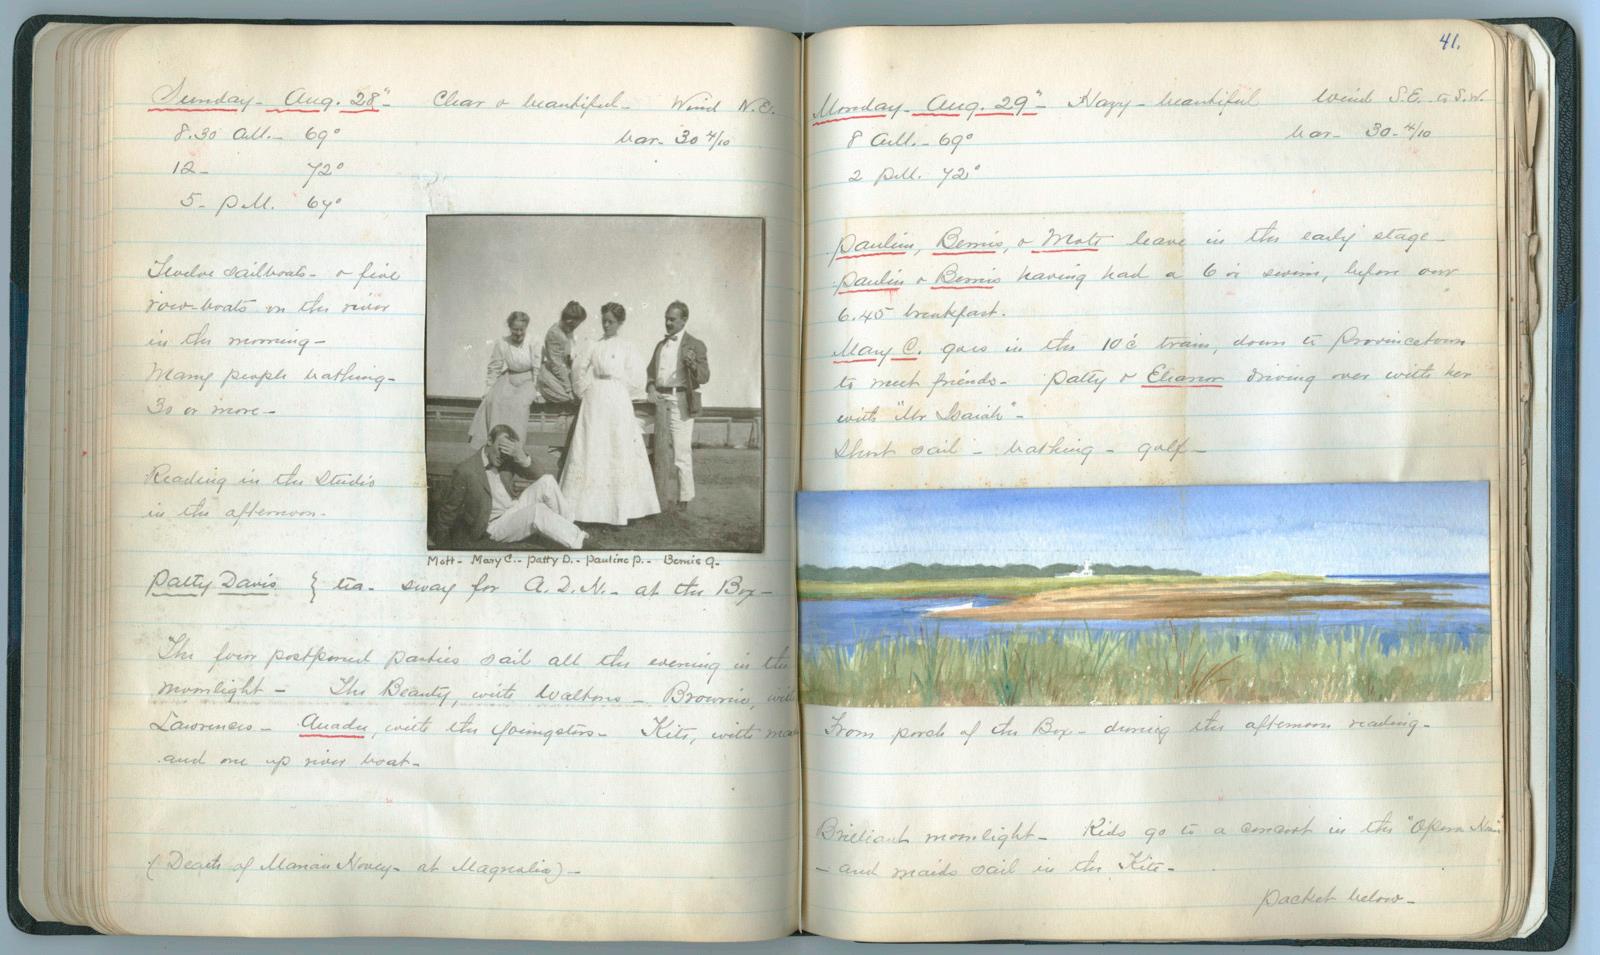 Sunday - Aug. 28" - Clear & beautiful - Wind N.E.
8.30 A.M. - 69° bar. 30 4/10
12 - 72°
5 - P.M. 64°
Twelve sailboats - & five
row-boats on the river
in the morning -
Many people bathing -
30 or more -
Reading in the Studio
in the afternoon -
Mott - Mary C. - Patty D. - Pauline P. - Bemis
Patty Davis } tea - away for A.D.N. - at the Box -
The four postponed parties sail all the evening in the
moonlight - The Beauty, with Waltons - Brownie, with
Lawrences - Anadu, with the youngsters - Kits, with
and one up river boat -
(Death of Marian Hovey - at Magnolia) -
41.
Monday - Aug. 29" - Hazy - beautiful Wind S.E. to S.W.
8 A.M. - 69° bar - 30 - 4/10
2 P.M. 72°
Paulin, Bemis, & Mott leave in the early stage -
Paulin & Bemis having had a 6 oc swim, before our
6.45 breakfast.
Mary C. goes in the 10 c train, down to Provincetown
to meet friends - Patty & Eleanor driving over with her
with "Mr Isaiah" -
Short sail - bathing - golf -
From porch of the Box - during the afternoon reading -
Brilliant moonlight - Kids go to a concert in the "Opera
- and maids sail in the Kits -
Packet below -